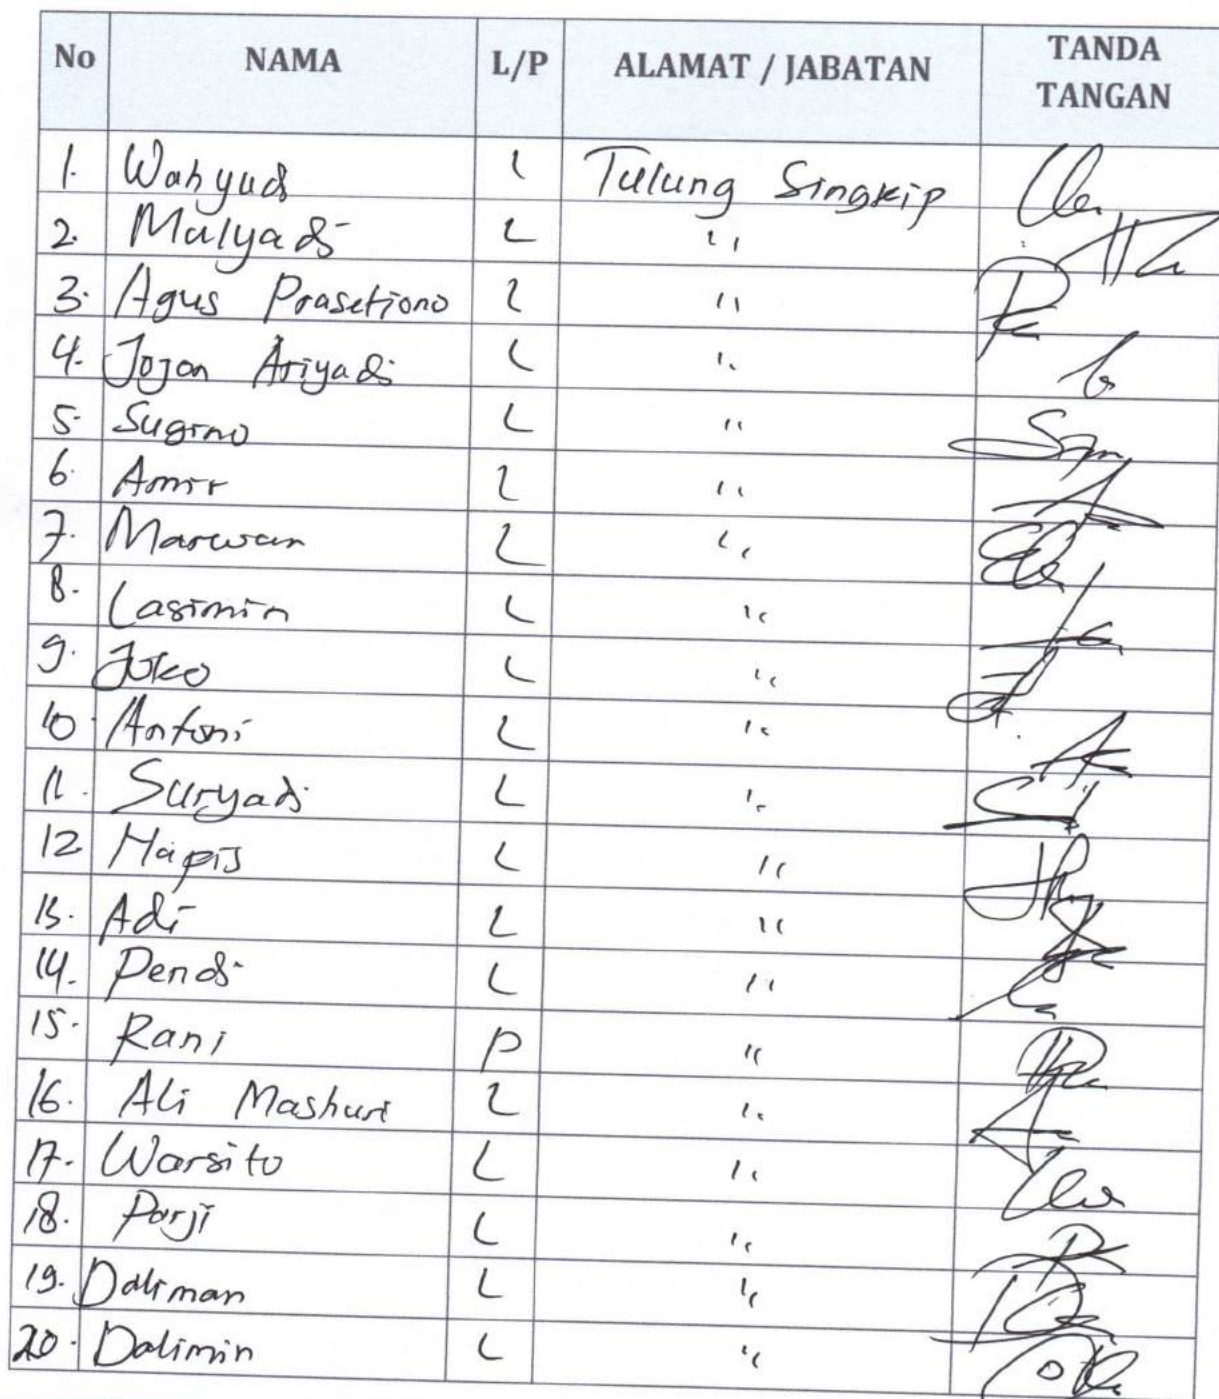 No NAMA L/P ALAMAT / JABATAN TANDA TANGAN
1. Wahyudi L Tulung Singkip
2. Mulyadi L "
3. Agus Prasetiono L "
4. Jojon Ariyadi L "
5. Sugino L "
6. Amir L "
7. Marwan L "
8. Lasimin L "
9. Joko L "
10. Antoni L "
11. Suryadi L "
12 Hapis L "
13. Adi L "
14. Pendi L "
15. Rani P "
16. Ali Mashuri L "
17. Warsito L "
18. Parji L "
19. Daliman L "
20. Dalimin L "